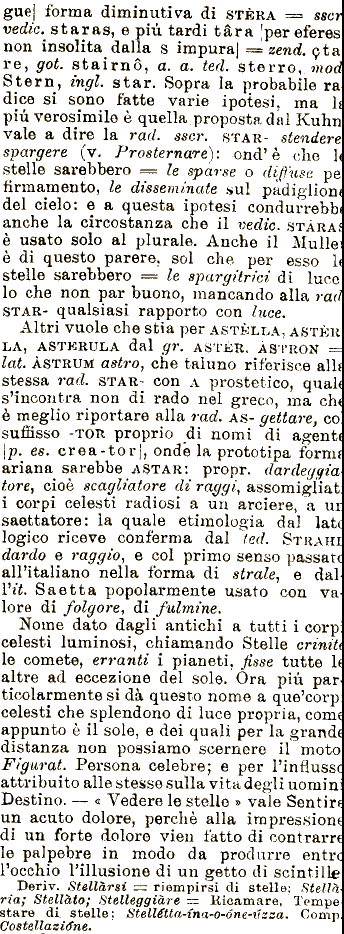 gue] forma diminutiva di STÈRA = sscr
vedic. staras, e più tardi târa [per eferes
non insolita dalla s impura] = zend. çta
re, got. stairnô, a. a. ted. sterro, mod
Stern, ingl. star. Sopra la probabile ra
dice si sono fatte varie ipotesi, ma la
più verosimile è quella proposta dal Kuhn
vale a dire la rad. sscr. STAR- stendere
spargere (v. Prosternare): ond'è che le
stelle sarebbero = le sparse o diffuse pe
firmamento, le disseminate sul padiglione
del cielo: e a questa ipotesi condurrebbe
anche la circostanza che il vedic. STÀRAS
è usato solo al plurale. Anche il Mulle
è di questo parere, sol che per esso le
stelle sarebbero = le spargitrici di luce
lo che non par buono, mancando alla rad
STAR- qualsiasi rapporto con luce.
Altri vuole che stia per ASTÈLLA, ASTÈR
LA, ASTERULA dal gr. ASTÈR, ÀSTRON =
lat. ÀSTRUM astro, che taluno riferisce alla
stessa rad. STAR- con A prostetico, quale
s'incontra non di rado nel greco, ma che
è meglio riportare alla rad. AS- gettare, co
suffisso -TOR proprio di nomi di agente
[p. es. crea-tor], onde la prototipa forma
ariana sarebbe ASTAR: propr. dardeggia
tore, cioè scagliatore di raggi, assomigliati
i corpi celesti radiosi a un arciere, a un
saettatore: la quale etimologia dal lato
logico riceve conferma dal ted. STRAHL
dardo e raggio, e col primo senso passato
all'italiano nella forma di strale, e dal-
l'it. Saetta popolarmente usato con va-
lore di folgore, di fulmine.
Nome dato dagli antichi a tutti i corpi
celesti luminosi, chiamando Stelle crinite
le comete, erranti i pianeti, fisse tutte le
altre ad eccezione del sole. Ora più par-
ticolarmente si dà questo nome a que'corpi
celesti che splendono di luce propria, come
appunto è il sole, e dei quali per la grande
distanza non possiamo scernere il moto
Figurat. Persona celebre; e per l'influsso
attribuito alle stesse sulla vita degli uomini
Destino. — « Vedere le stelle » vale Sentire
un acuto dolore, perchè alla impressione
di un forte dolore vien fatto di contrarre
le palpebre in modo da produrre entro
l'occhio l'illusione di un getto di scintille
Deriv. Stellàrsi = riempirsi di stelle; Stellà-
ria; Stellàto; Stelleggiàre = Ricamare, Tempe
stare di stelle; Stellétta-ína-o-óne-úzza. Comp
Costellazióne.